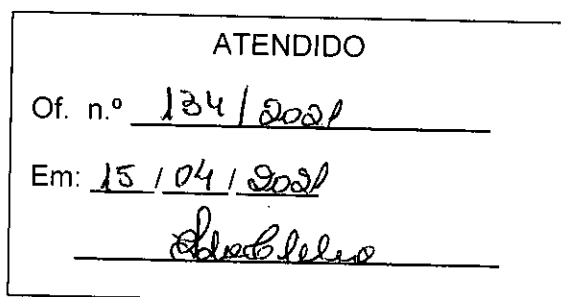 ATENDIDO
Of. n.º 134/2021
Em: 15/04/2021